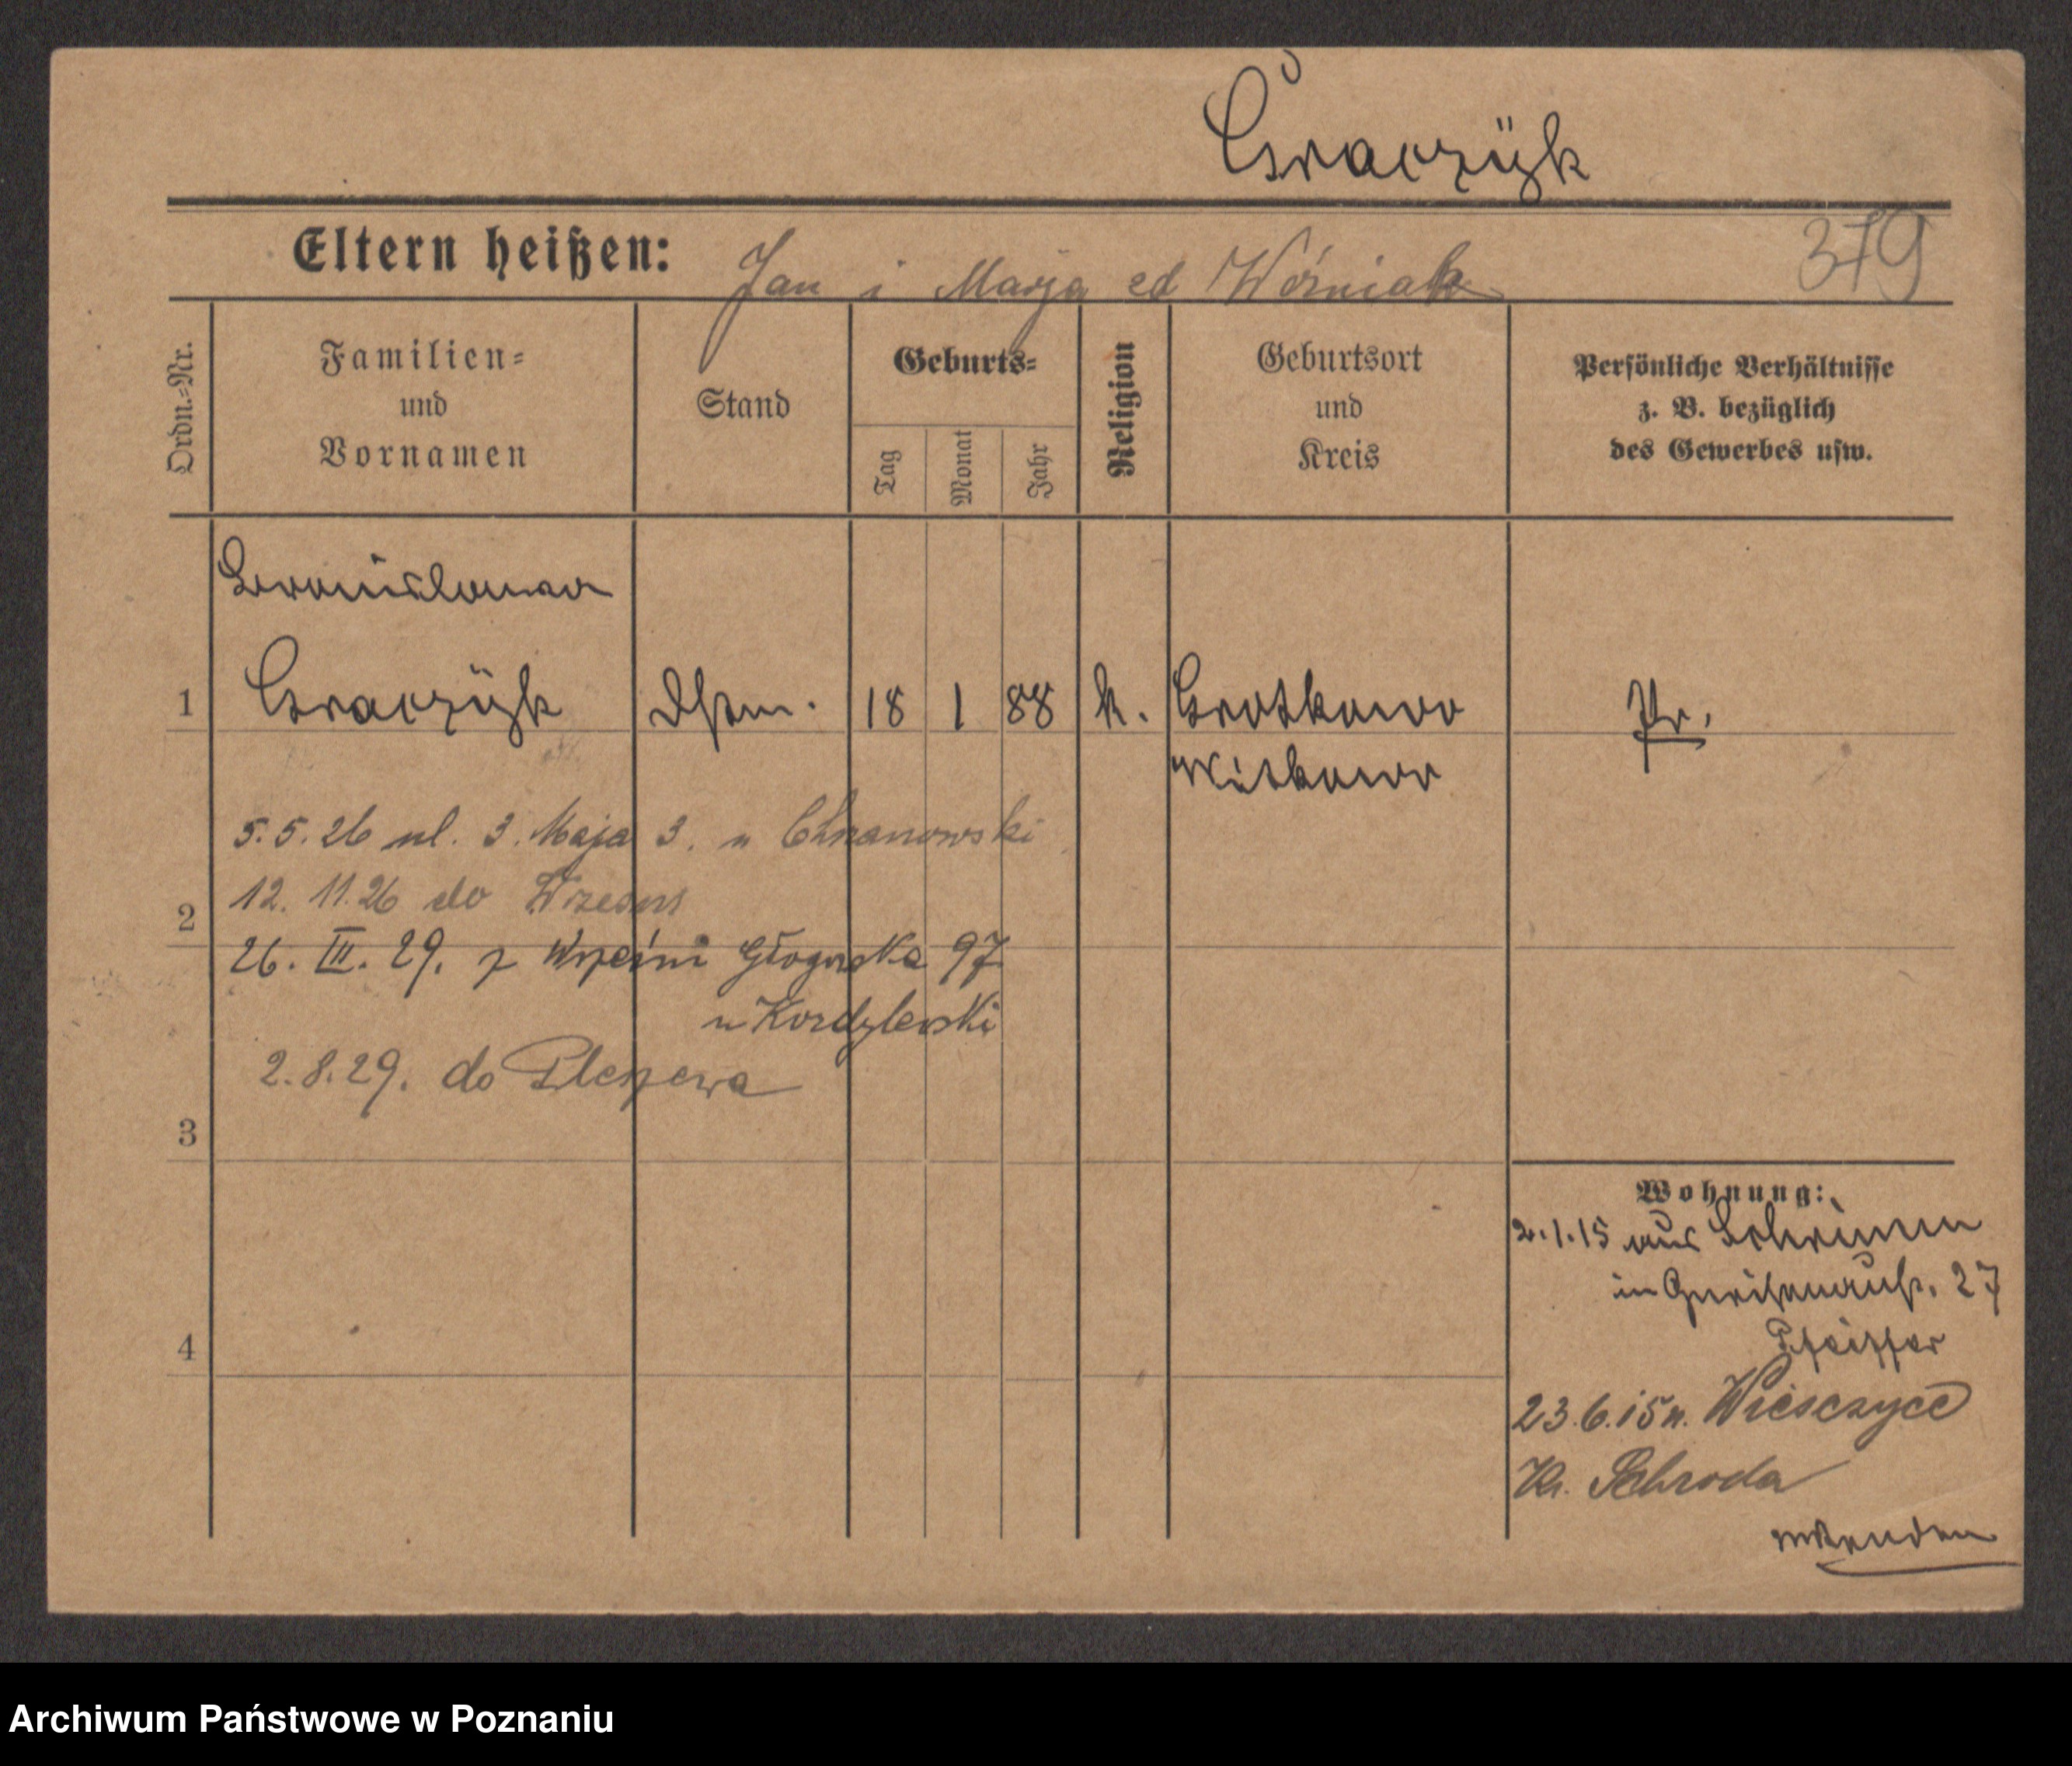 Graczÿk
Eltern heißen: Jan i Marja zd Woźniak
379
Ordn.-Nr.
Familien-
und
Vornamen
Stand
Geburts-
Tag
Monat
Jahr
Religion
Geburtsort
und
Kreis
Persönliche Verhältnisse
z. B. bezüglich
des Gewerbes usw.
Bronislawa
1 Graczÿk 18 1 88 k. Grotkowo Pr.
Witkowo
5.5.26 ul. 3. Maja 3. u Chrzanowski
2 12. 11.26 do
26. III. 29. z Wrześni Głogowska 97
u Kordylewski
2.8.29. do Pleszewa
3
Wohnung:
2.1.15 aus Schrimm
in Gneisenaustr. 27
Pfeiffer
4
23.6.15 n. Wiesczyce
Kr. Schroda